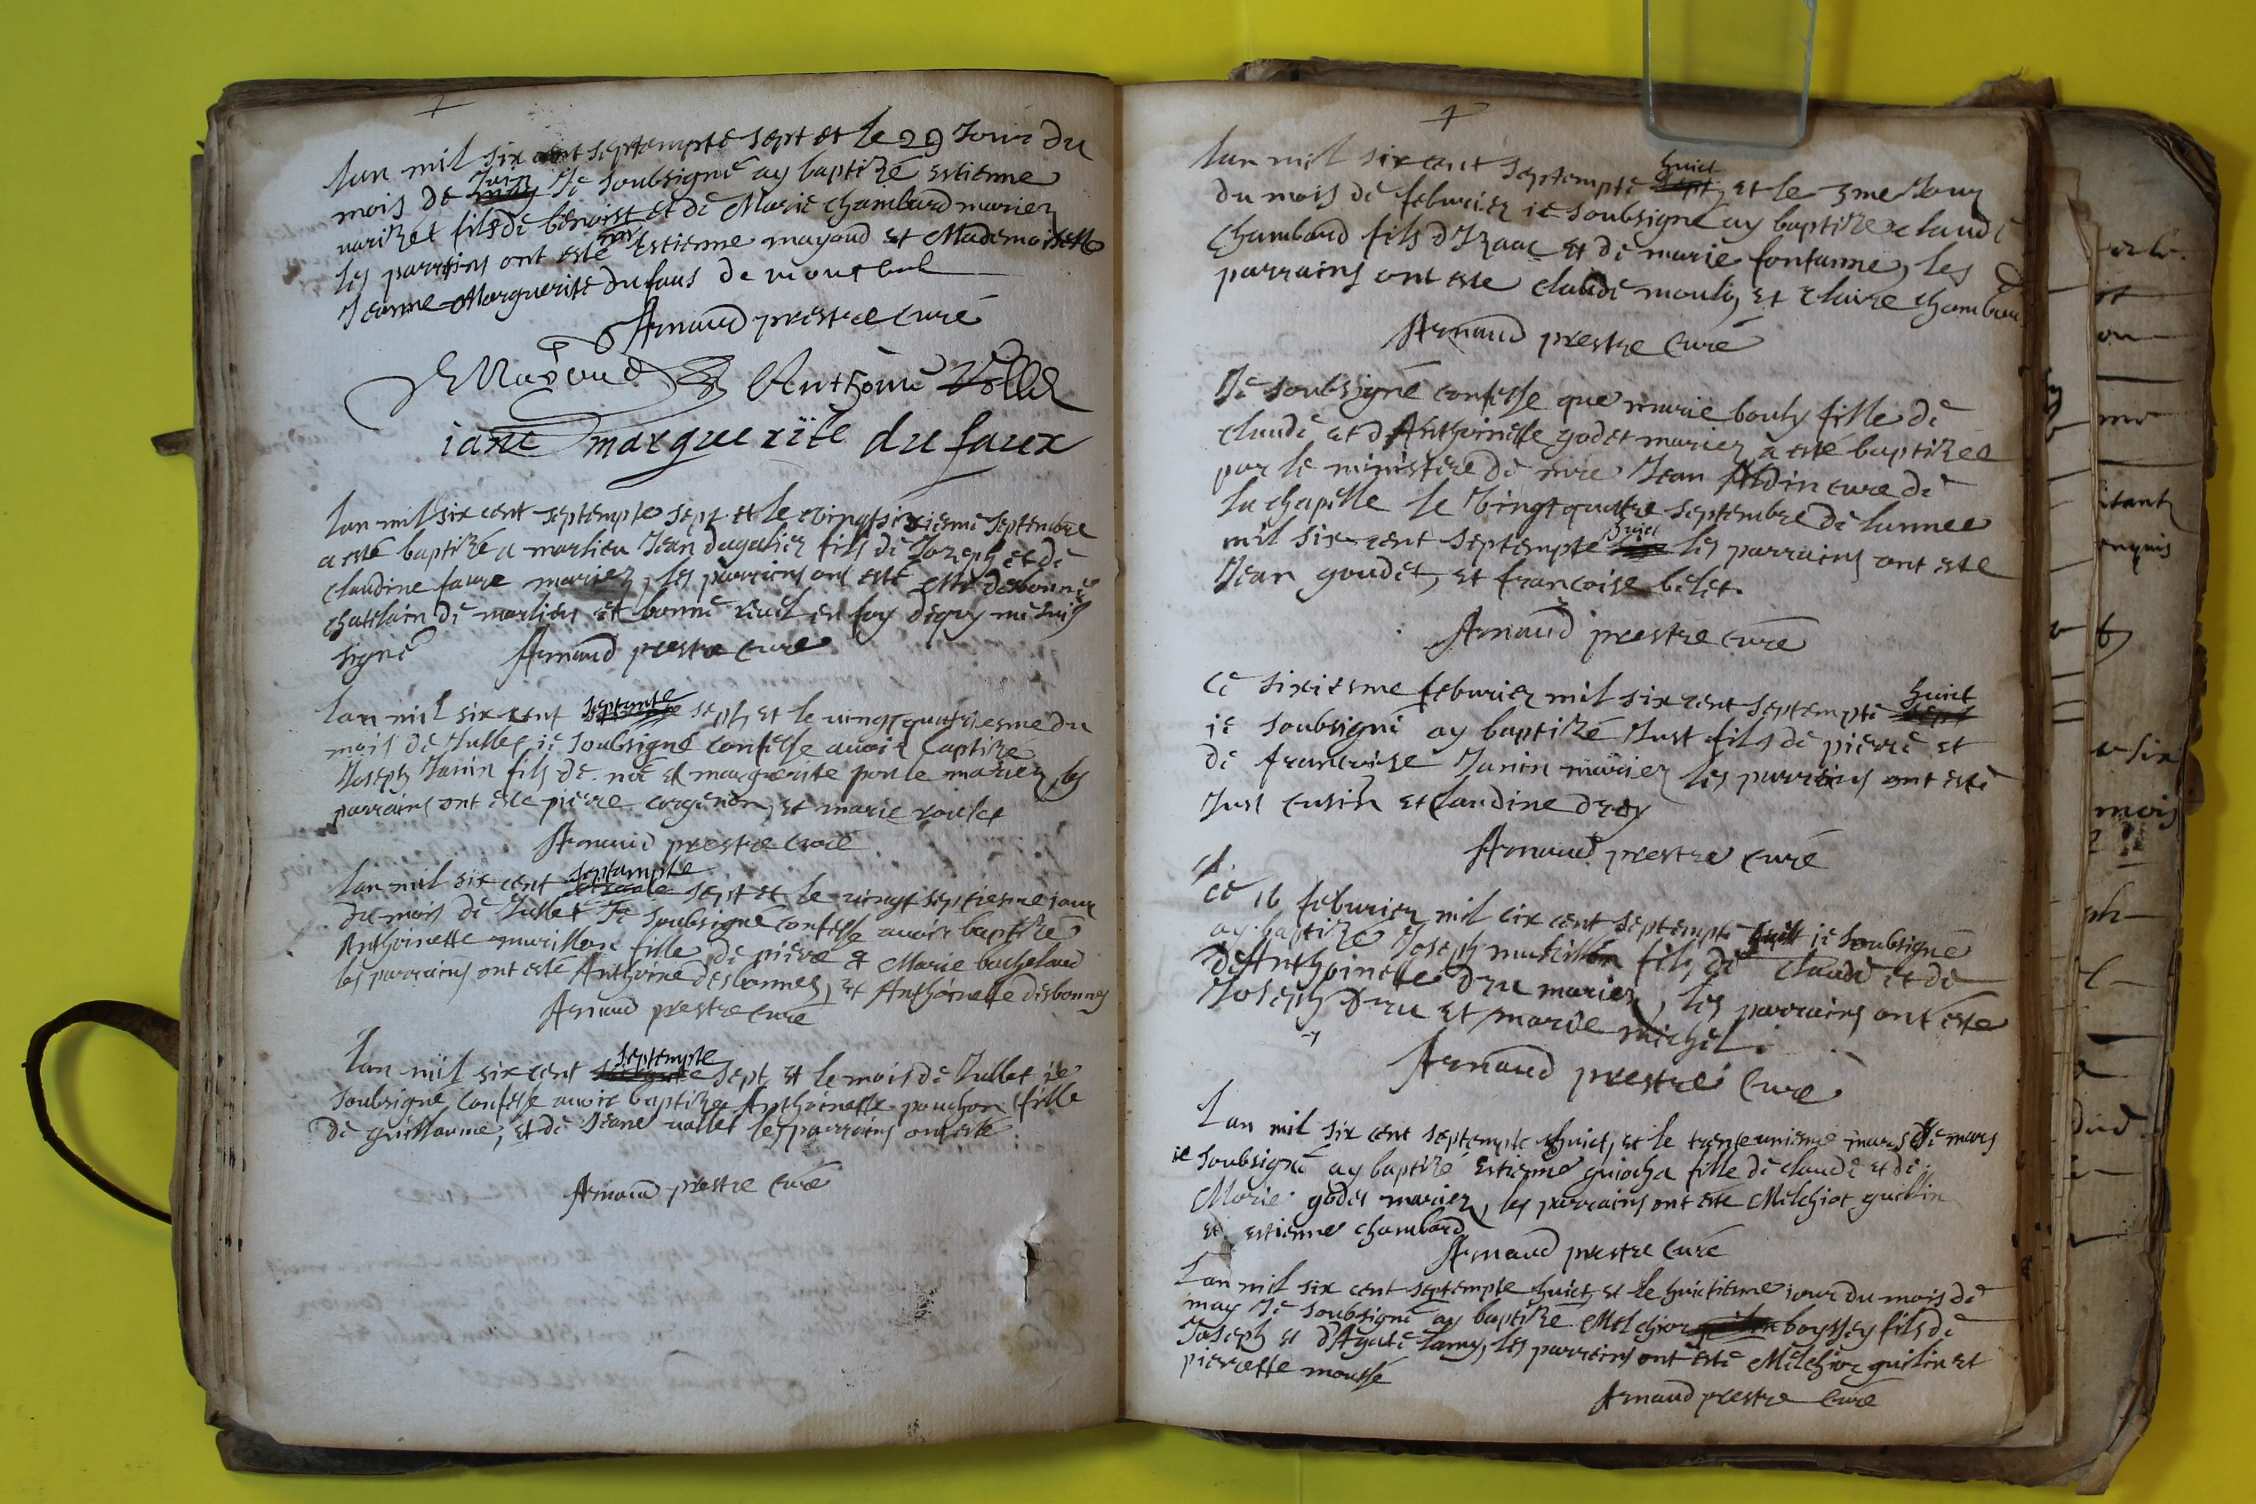 lan mil six cent septempte sept et le 29 Jour du
mois de Juin Je soubsigné ay baptizé estienne
varizet fils de benoist et de Marie chambard mariez
les parrains ont esté mr Estienne mayoud et Mademoiselle
Jeanne Marguerite du faus de montbel
Arnaud prestre curé
Mayoud Anthoine
iane marguerite du faux
lan mil six cent septempte sept et le vingt sixiesme septembre
a esté baptizé a marlieu Jean dugalier fils de Jozeph et de
claudine faure mariez, les parrains ont esté Mr desbonnes
chatelain de marlieu et bonne en foy dequoy me suis
signé Arnaud prestre curé
lan mil six cent septante sept, et le vingt quatriesme du
mois de Jullet ie soubsigné confesse avoir baptizé
Joseph Janin fils de noe et marguerite mariez, les
parrains ont esté pierre corgenon, et marie roulet
Arnaud prestre curé
lan mil six cent septampte sept et le vingt septiesme jour
du mois de Jullet Je soubsigné confesse avoir baptizé
Anthoinette murillon fille de pierre et Marie bachelard
les parrains ont esté Anthoine desbonnes, et Anthoinette desbonnes
Arnaud prestre curé
lan mil six cent septempte sept et le mois de Jullet ie
soubsigné confesse avoir baptizé Anthoinette pouchon fille
de guillaume, et de Jeane vallet les parrains ont esté
Arnaud prestre curé
lan mil six cent septempte huict, et le 3me Jour
du mois de feburier ie soubsigné ay baptizé claude
chambard fils d'Izaac et de marie fontanne, les
parrains ont esté claude moulin, et claire chambard
Arnaud prestre curé
Je soubsigné confesse que marie bouly fille de
claude et d'Anthoinette godet mariez a esté baptizée
par le ministere de mre Jean Aldin curé de
la chapelle le vingt quatre septembre de lannee
mil six cent septempte huict les parrains ont esté
Jean goudet, et francoise belet.
Arnaud prestre curé
Ce sixiesme feburier mil six cent septempte huict
ie soubsigné ay baptizé Just fils de pierre et
de francoise Janin mariez les parrains ont esté
Just cusin et claudine droy
Arnaud prestre curé
Ce 16 feburier mil six cent septempte huict ie soubsigné
ay baptizé Joseph murillon fils de claude et de
d'Anthoinette dru mariez, les parrains ont esté
Joseph dru et marie michel.
Arnaud prestre curé
Lan mil six cent septempte huict, et le trente uniesme mars de mars
ie soubsigné ay baptizé estienne guiocha fille de claude et de
Marie godet mariez, les parrains ont esté Melchiot guillin
et estienne chambard
Arnaud prestre curé
Lan mil six cent septempte huict, et le huictiesme jour du mois de
may Je soubsigné ay baptizé Melchior boyssey fils de
Joseph et d'Agate lamy, les parrains ont esté Melchior guilin et
pierrette mousse
Arnaud prestre curé